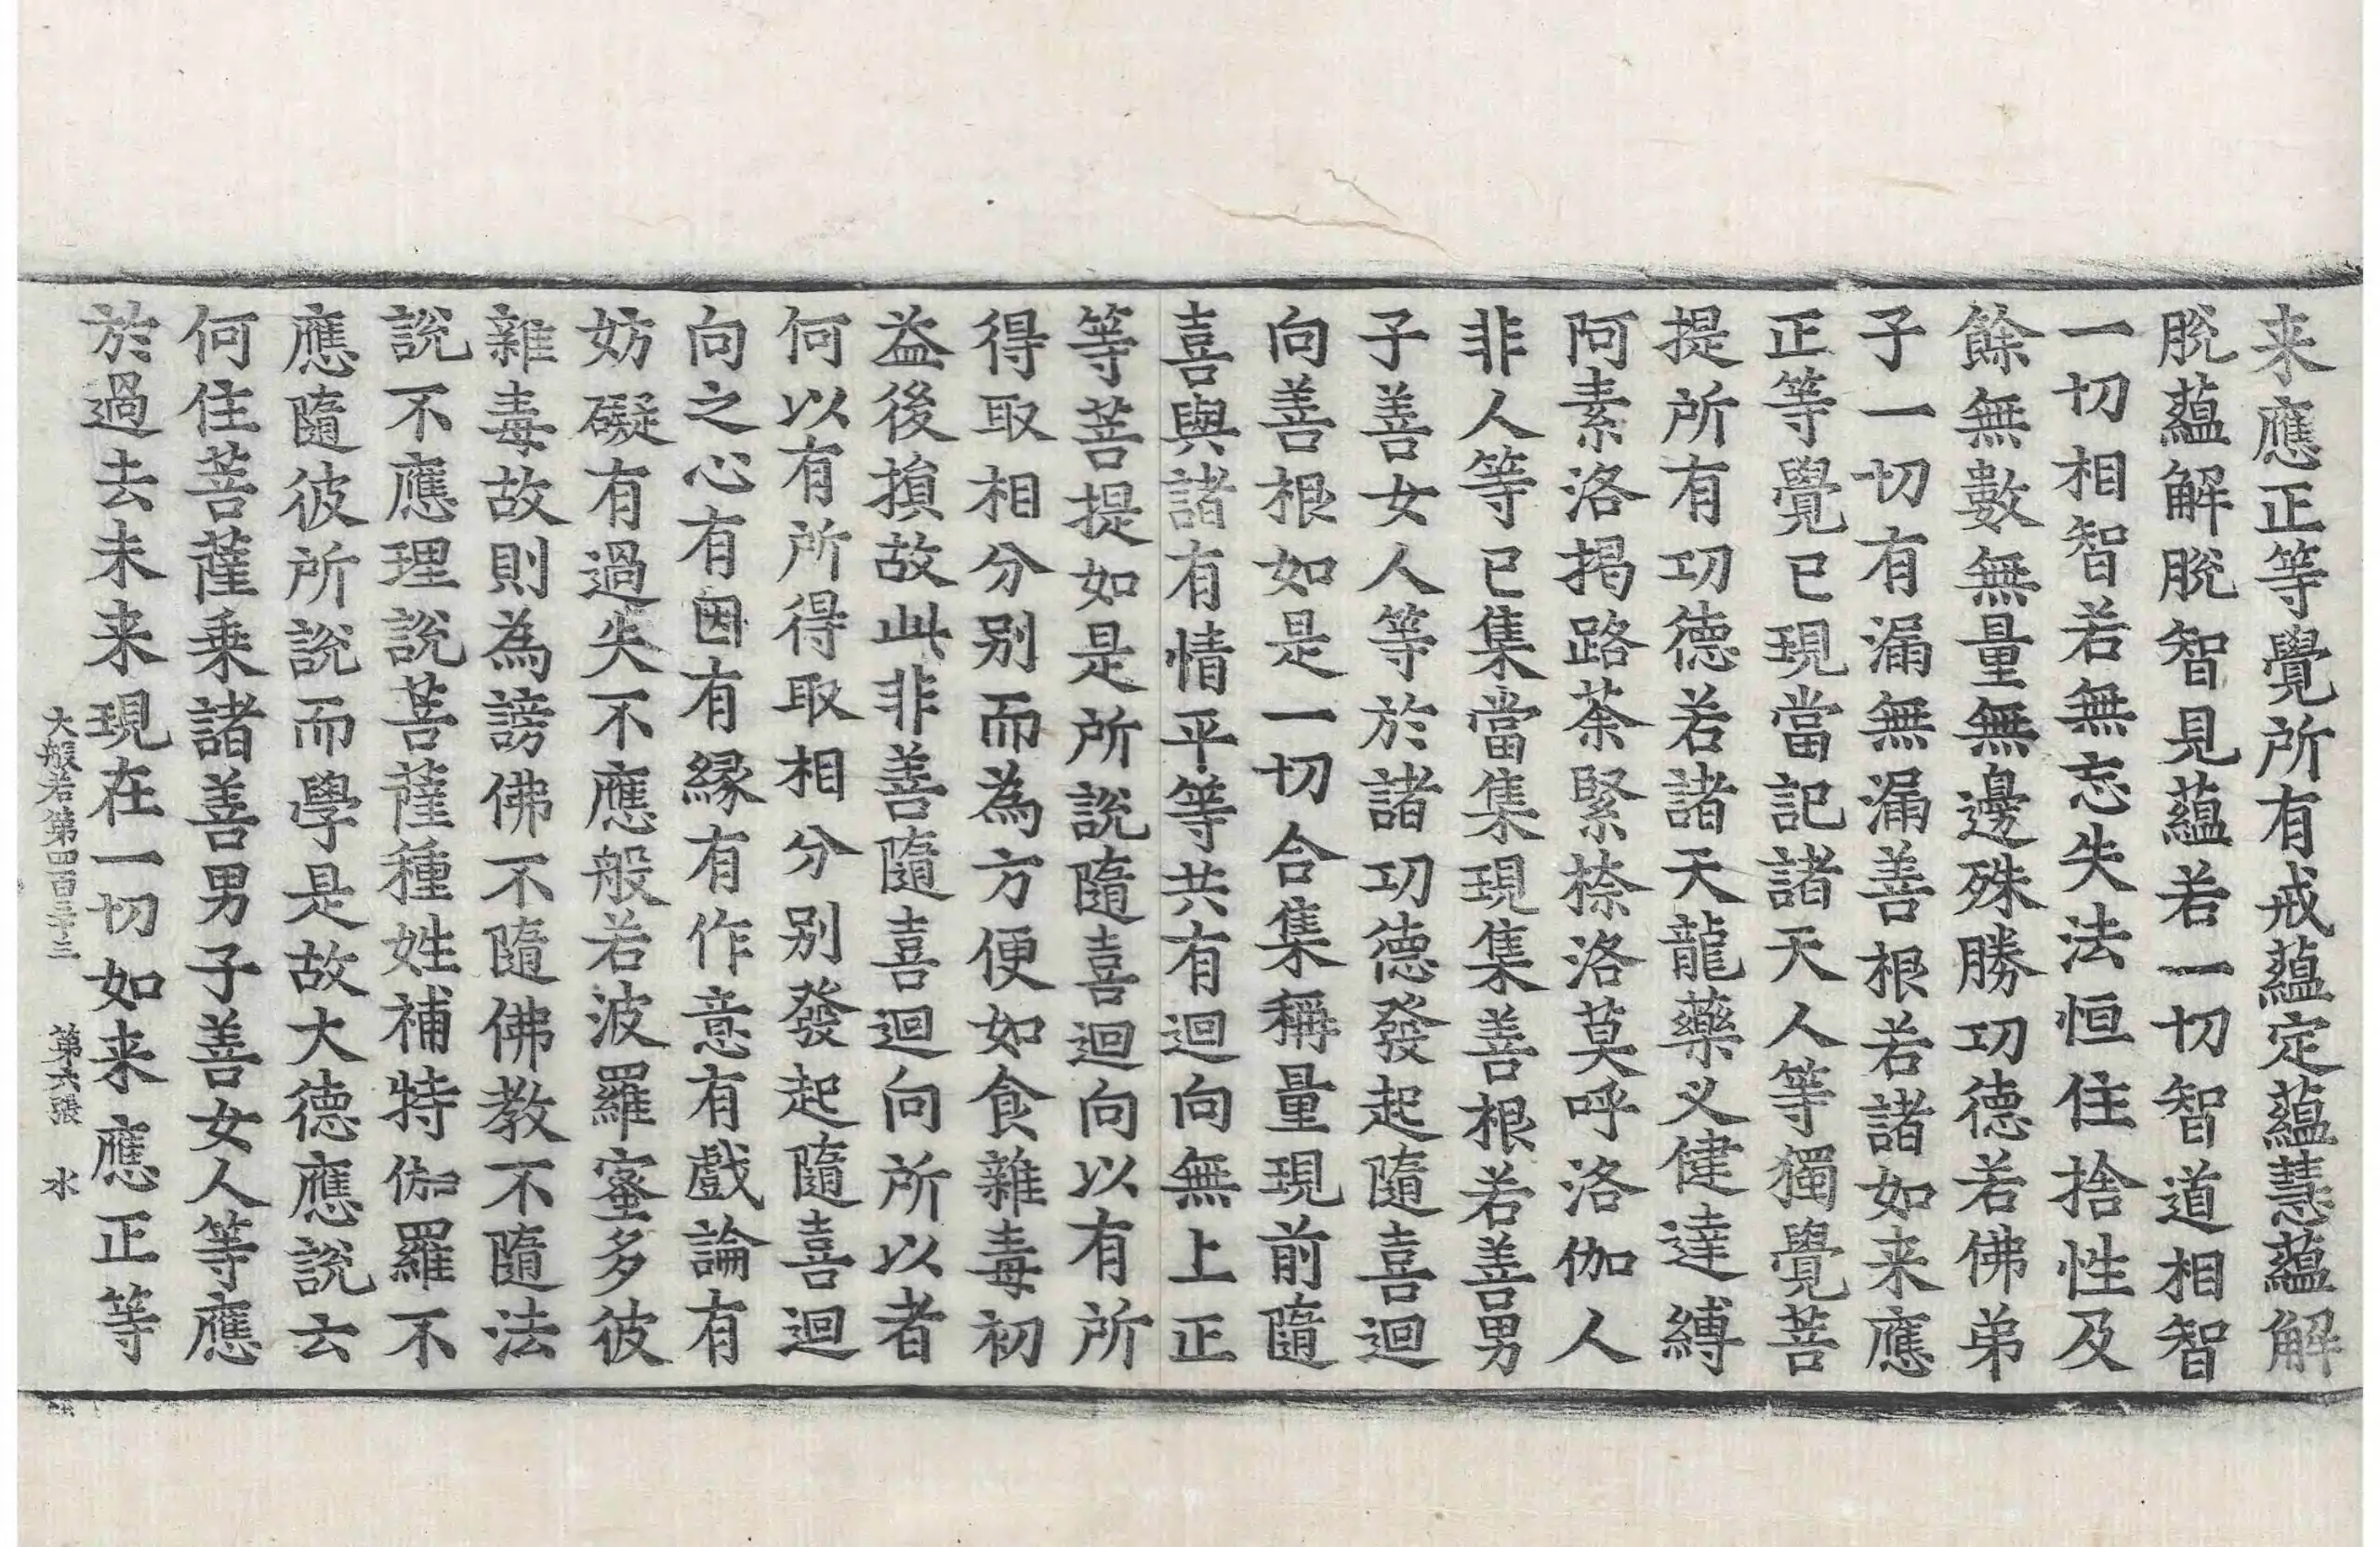 来應正等覺所有戒蘊定蘊慧蘊解
脫蘊解脫智見蘊若一切智道相智
一切相智若無忘失法恒住捨性及
餘無數無量無邊殊勝功德若佛弟
子一切有漏無漏善根若諸如来應
正等覺已現當記諸天人等獨覺菩
提所有功德若諸天龍藥义健達縛
阿素洛揭路荼緊捺洛莫呼洛伽人
非人等已集當集現集善根若善男
子善女人等於諸功德發起隨喜迴
向善根如是一切合集稱量現前隨
喜與諸有情平等共有迴向無上正
等菩提如是所說隨喜迴向以有所
得取相分别而為方便如食雜毒初
益後損故此非善隨喜迴向所以者
何以有所得取相分别發起隨喜迴
向之心有因有緣有作意有戲論有
妨礙有過失不應般若波羅蜜多彼
雜毒故則為謗佛不隨佛教不隨法
說不應理說菩薩種姓補特伽羅不
應隨彼所說而學是故大德應說云
何住菩薩乗諸善男子善女人等應
於過去未来現在一切如来應正等
大般若第四百三十三 第六張 水